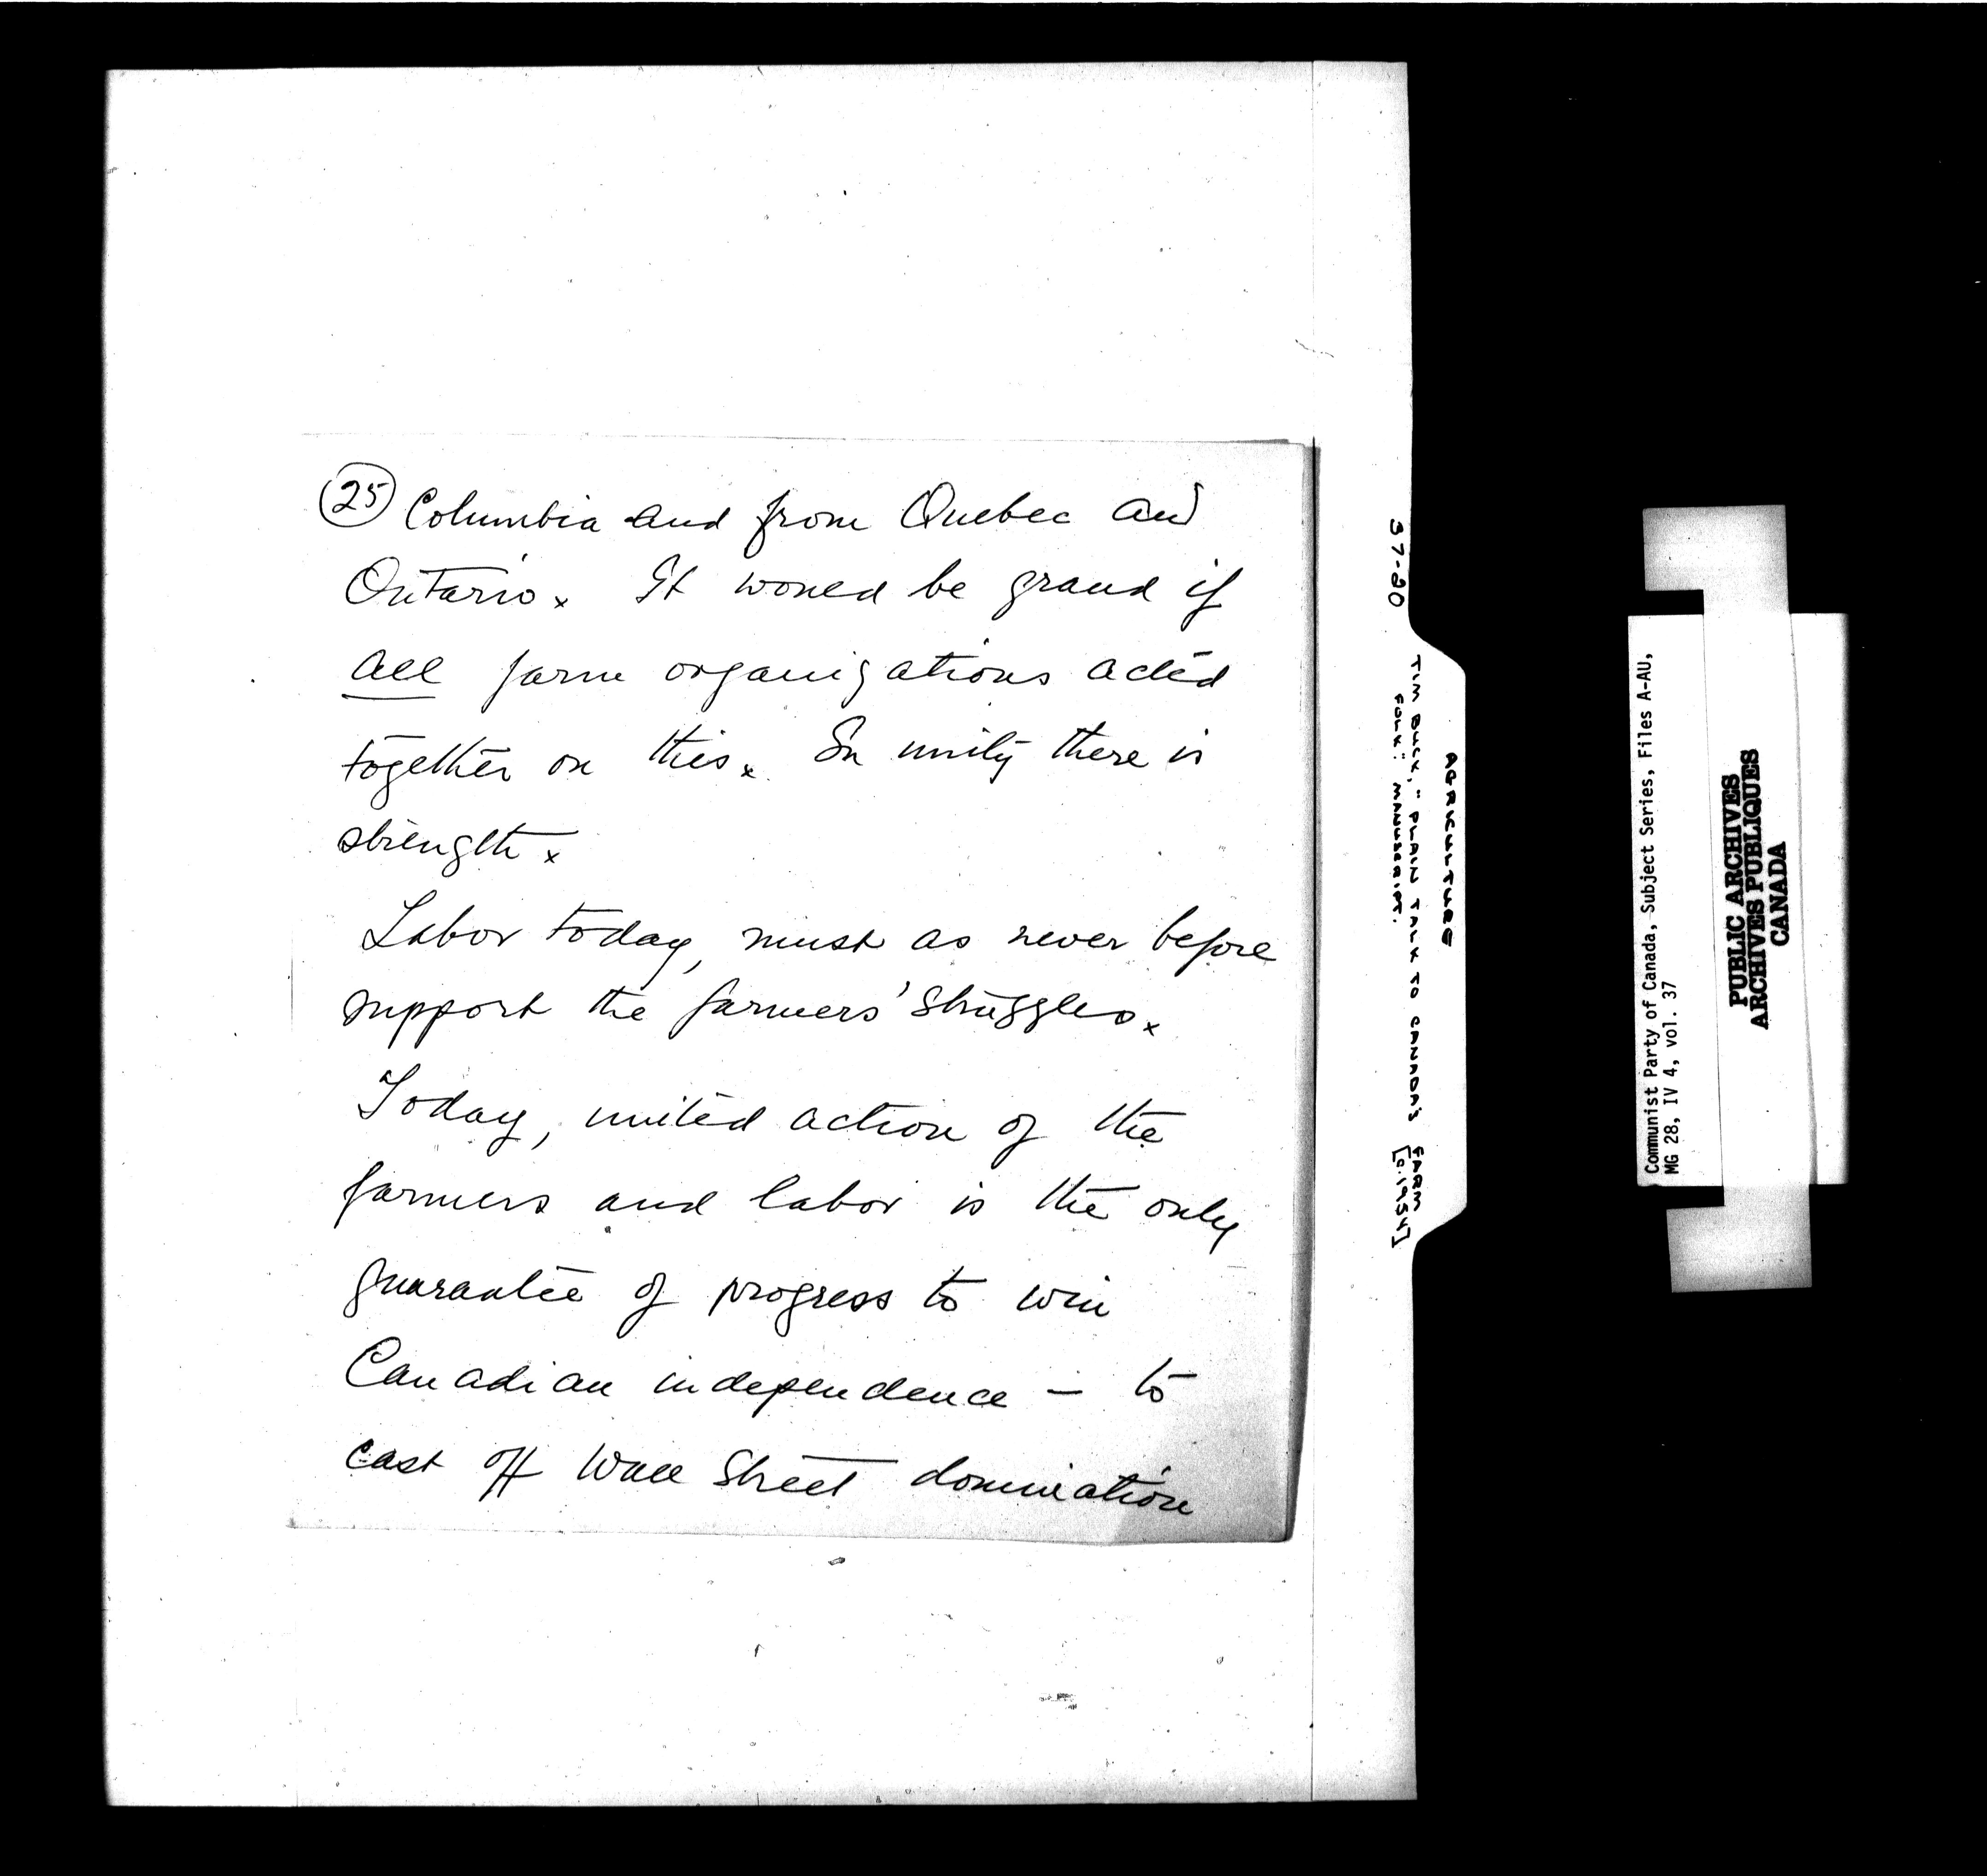 (25) Columbia and from Quebec and
Ontario x It would be grand if
all farm organizations acted
together on this x In unity there is
strength x
Labor today, must as never before
support the farmers' struggles x
Today, united action of the
farmers and labor is the only
guarantee of progress to win
Canadian independence – to
cast off Wall Street domination
37-20
AGRICULTURE
TIM BUCK, "PLAIN TALK TO CANADA'S FARM
FOLK: MANUSCRIPT. [c.1954]
Communist Party of Canada, Subject Series, Files A-AU,
MG 28, IV 4, vol. 37
PUBLIC ARCHIVES
ARCHIVES PUBLIQUES
CANADA